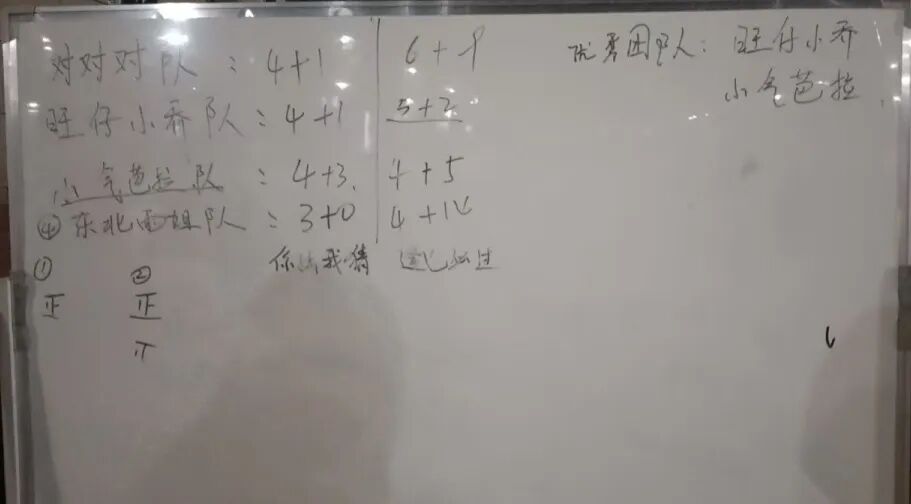 对对对队：4+1 6+9
旺仔小乔队：4+1 5+2
小气芭拉队：4+3 4+5
④东北雨姐队：3+0 4+14
你比我猜
① ②
正 正
优秀团队：旺仔小乔
小气芭拉